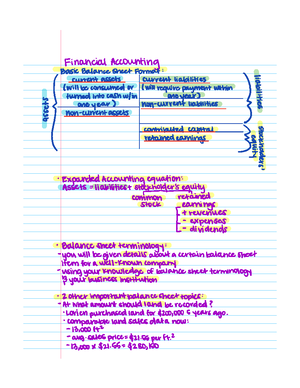 Financial Accounting
Basic Balance Sheet Format:
current assets
(will be consumed or
turned into cash w/in
one year)
non-current assets
current liabilities
(will require payment within
one year)
non-current liabilities
contributed capital
retained earnings
assets
liabilities
stockholders'
equity
• Expanded Accounting equation:
Assets = liabilities + stockholder's equity
common
stock
retained
earnings
+ revenues
- expenses
- dividends
• Balance sheet terminology:
- you will be given details about a certain balance sheet
item for a well-known company
- using your knowledge of balance sheet terminology
& your business institution
• 2 other important balance sheet topics:
- At what amount should land be recorded?
- Lorien purchased land for $200,000 5 years ago.
• comparable land sales data now:
- 13,000 ft²
- avg. sales price = $21.55 per ft²
- 13,000 x $21.55 = $280,150